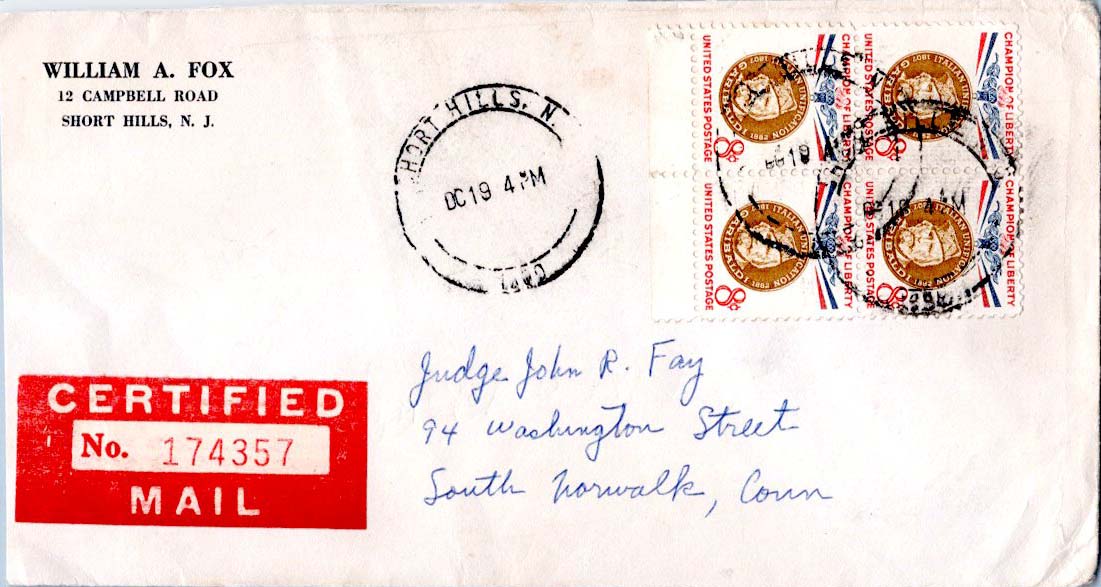 WILLIAM A. FOX
12 CAMPBELL ROAD
SHORT HILLS, N. J.
SHORT HILLS, N.
DC 19 4 PM
1960
UNITED STATES POSTAGE
8¢
GARIBALDI
1807 ITALIAN UNIFICATION 1882
CHAMPION OF LIBERTY
UNITED STATES POSTAGE
8¢
GARIBALDI
1807 ITALIAN UNIFICATION 1882
CHAMPION OF LIBERTY
DC 19 4
UNITED STATES POSTAGE
8¢
GARIBALDI
1807 ITALIAN UNIFICATION 1882
CHAMPION OF LIBERTY
UNITED STATES POSTAGE
8¢
GARIBALDI
1807 ITALIAN UNIFICATION 1882
CHAMPION OF LIBERTY
DC 19 4 PM
Judge John R. Fay
94 Washington Street
South Norwalk, Conn
CERTIFIED
No. 174357
MAIL